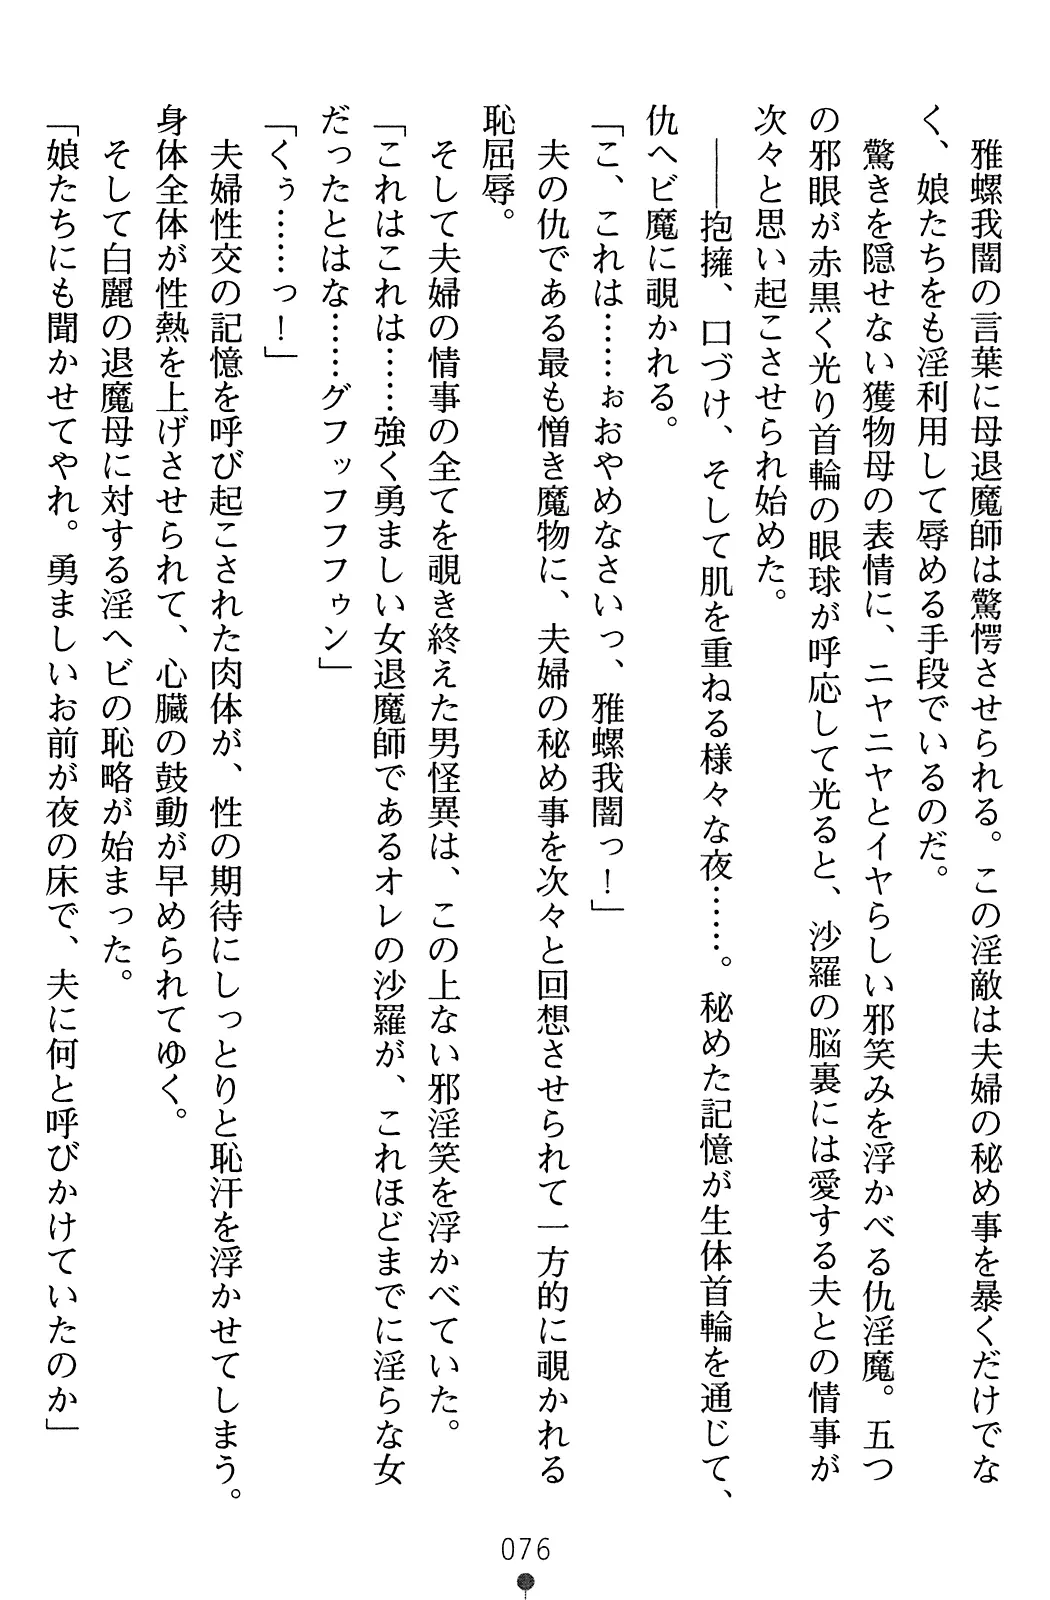 雅螺我闇の言葉に母退魔師は驚愕させられる。この淫敵は夫婦の秘め事を暴くだけでな
く、娘たちをも淫利用して辱める手段でいるのだ。
驚きを隠せない獲物母の表情に、ニヤニヤとイヤらしい邪笑みを浮かべる仇淫魔。五つ
の邪眼が赤黒く光り首輪の眼球が呼応して光ると、沙羅の脳裏には愛する夫との情事が
次々と思い起こさせられ始めた。
――抱擁、口づけ、そして肌を重ねる様々な夜……。秘めた記憶が生体首輪を通じて、
仇ヘビ魔に覗かれる。
「こ、これは……ぉおやめなさいっ、雅螺我闇っ！」
夫の仇である最も憎き魔物に、夫婦の秘め事を次々と回想させられて一方的に覗かれる
恥屈辱。
そして夫婦の情事の全てを覗き終えた男怪異は、この上ない邪淫笑を浮かべていた。
「これはこれは……強く勇ましい女退魔師であるオレの沙羅が、これほどまでに淫らな女
だったとはな……グフッフフフゥン」
「くぅ……っ！」
夫婦性交の記憶を呼び起こされた肉体が、性の期待にしっとりと恥汗を浮かせてしまう。
身体全体が性熱を上げさせられて、心臓の鼓動が早められてゆく。
そして白麗の退魔母に対する淫ヘビの恥略が始まった。
「娘たちにも聞かせてやれ。勇ましいお前が夜の床で、夫に何と呼びかけていたのか」
076